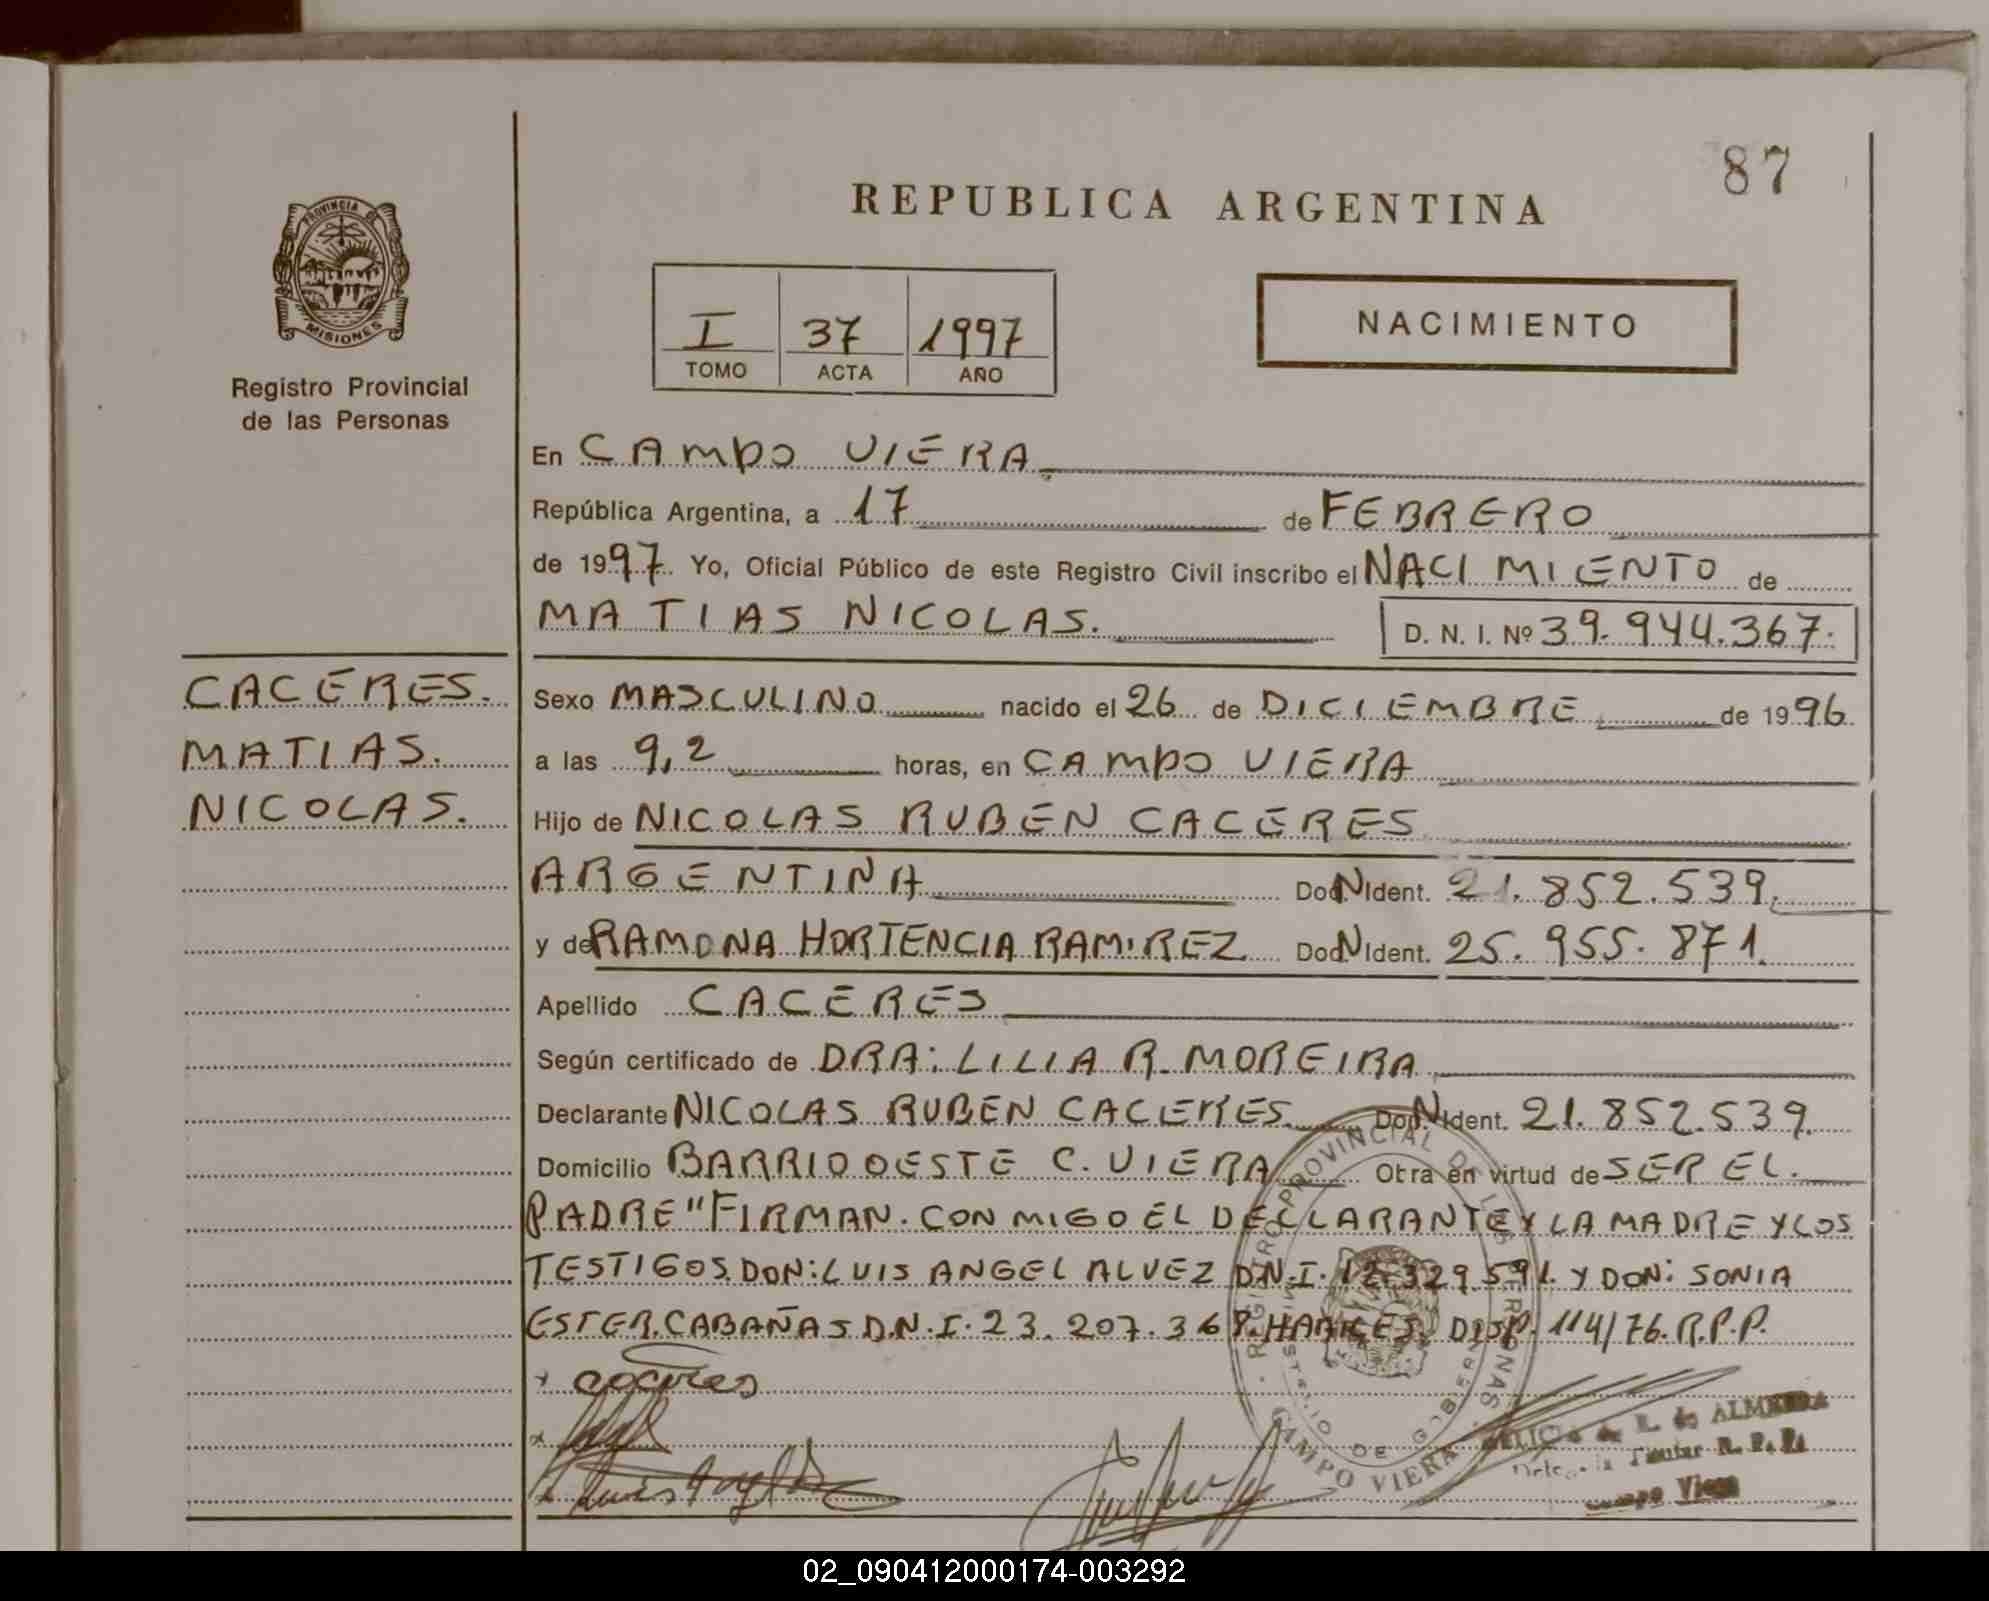 87
REPUBLICA ARGENTINA
PROVINCIA DE
MISIONES
Registro Provincial
de las Personas
I 37 1997
TOMO ACTA AÑO
NACIMIENTO
En CAMPO VIERA
República Argentina, a 17 de FEBRERO
de 1997. Yo, Oficial Público de este Registro Civil inscribo el NACIMIENTO de
MATIAS NICOLAS. D. N. I. Nº 39.944.367.
CACERES.
MATIAS.
NICOLAS.
Sexo MASCULINO nacido el 26 de DICIEMBRE de 1996
a las 9,2 horas, en CAMPO VIERA
Hijo de NICOLAS RUBEN CACERES
ARGENTINA Doc. N Ident. 21.852.539.
y de RAMONA HORTENCIA RAMIREZ Doc. N Ident. 25.955.871.
Apellido CACERES
Según certificado de DRA: LILIA R. MOREIRA
Declarante NICOLAS RUBEN CACERES. Doc. N Ident. 21.852.539.
Domicilio BARRIO OESTE C. VIERA Otra en virtud de SER EL.
PADRE "FIRMAN. CONMIGO EL DECLARANTE Y LA MADRE Y LOS
TESTIGOS DON: LUIS ANGEL ALVEZ D.N.I. 12.329.591. Y DON: SONIA
ESTER CABAÑAS D.N.I. 23.207.368. DISP. 114/76. R.P.P.
REGISTRO PROVINCIAL DE LAS PERSONAS
MINISTERIO DE GOBIERNO
CAMPO VIERA
Caceres
de R. de ALMEIRA
Titular R. P. P.
Campo Viera
02_090412000174-003292